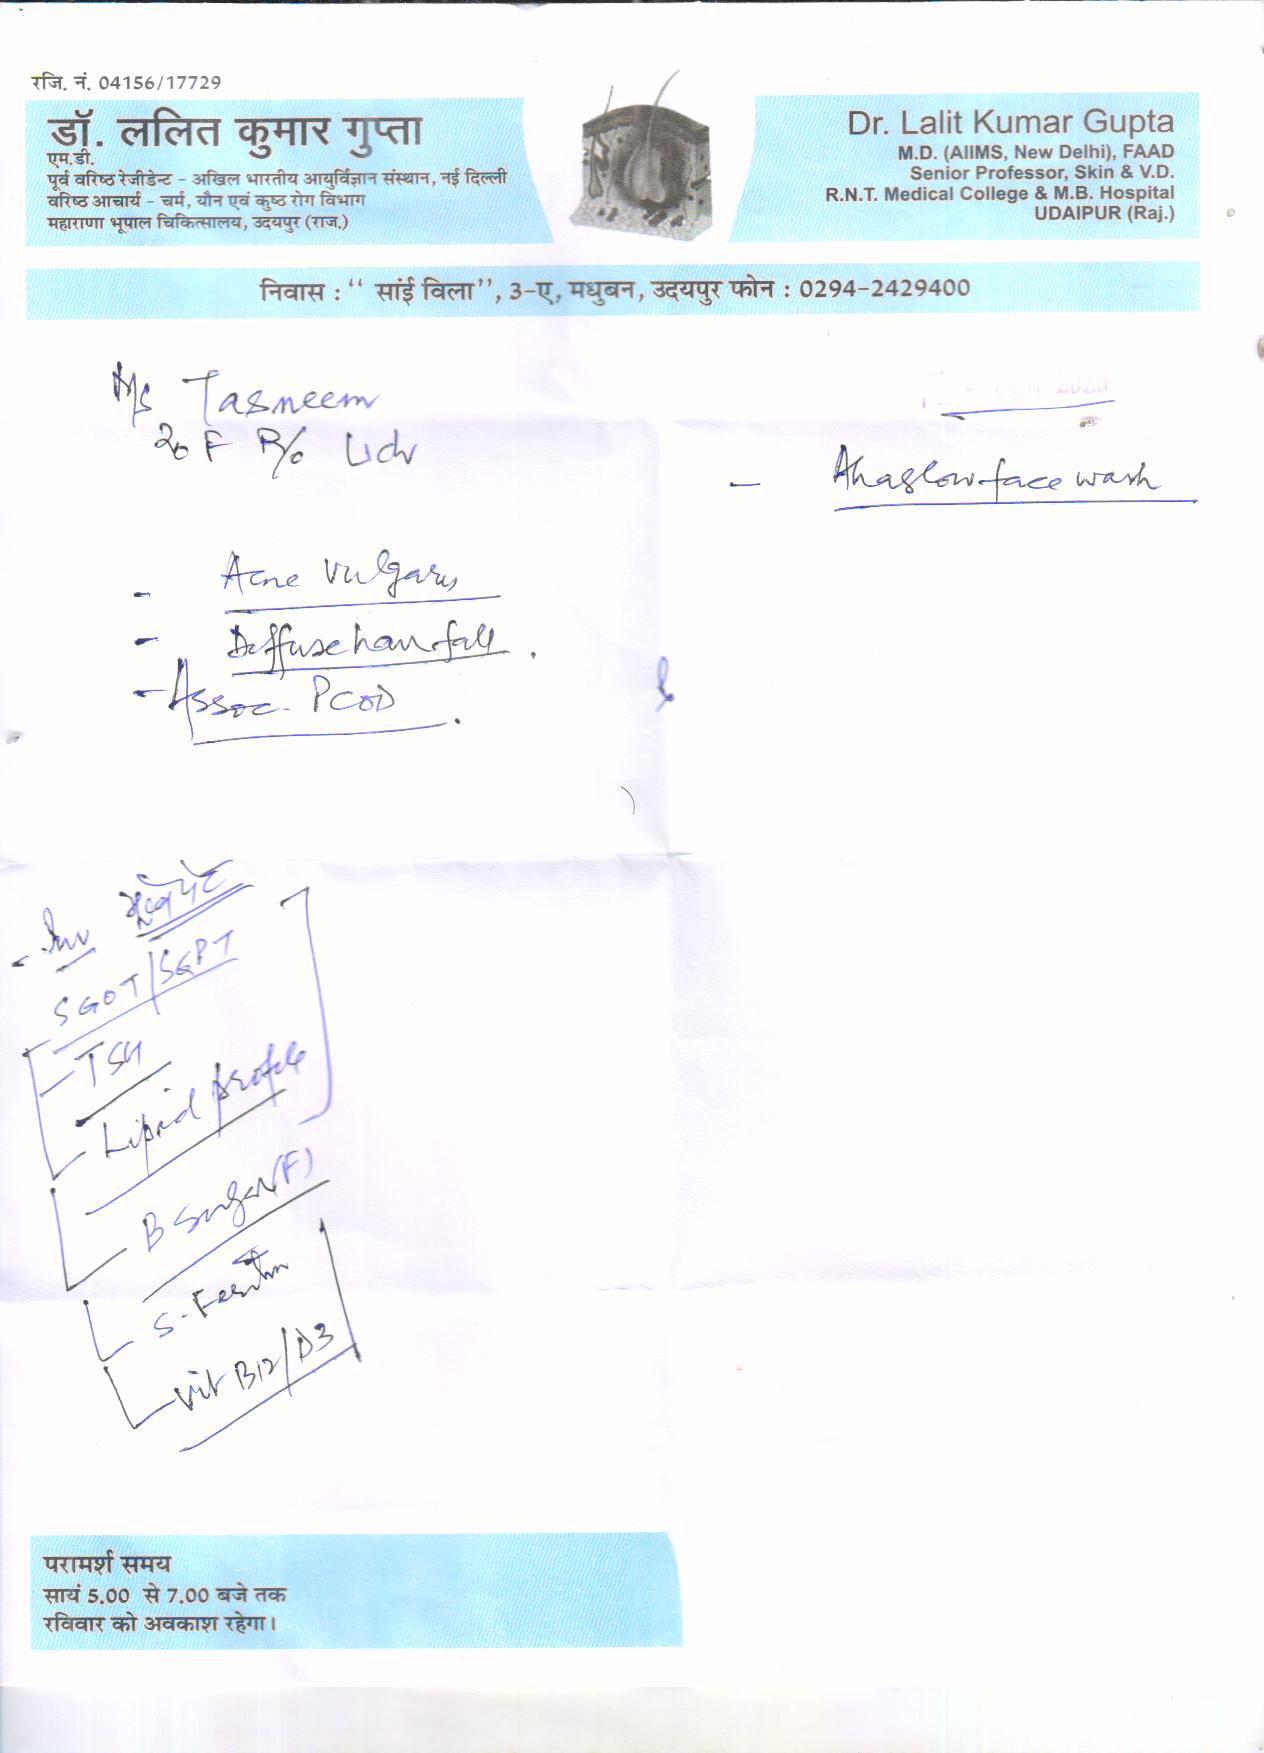 रजि. नं. 04156/17729
डॉ. ललित कुमार गुप्ता
एम.डी.
पूर्व वरिष्ठ रेजीडेन्ट - अखिल भारतीय आयुर्विज्ञान संस्थान, नई दिल्ली
वरिष्ठ आचार्य - चर्म, यौन एवं कुष्ठ रोग विभाग
महाराणा भूपाल चिकित्सालय, उदयपुर (राज.)
Dr. Lalit Kumar Gupta
M.D. (AIIMS, New Delhi), FAAD
Senior Professor, Skin & V.D.
R.N.T. Medical College & M.B. Hospital
UDAIPUR (Raj.)
निवास : ‘‘ सांई विला’’, 3-ए, मधुबन, उदयपुर फोन : 0294-2429400
M/s Tasneem
20 F R/o Udr
- Acne vulgaris
- Diffuse hair fall.
- Assoc. PCOD.
- Ahaglow face wash
- Inv
SGOT/SGPT
- TSH
- Lipid profile
- B Sugar (F)
- S-Ferritin
- Vit B12/D3
परामर्श समय
सायं 5.00 से 7.00 बजे तक
रविवार को अवकाश रहेगा।